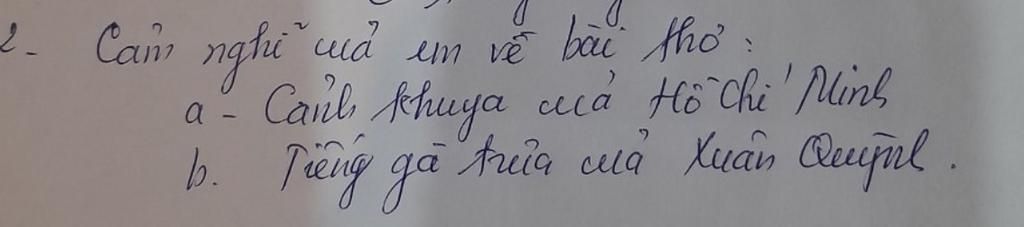 2- Cảm nghĩ của em về bài thơ:
a - Cảnh khuya của Hồ Chí Minh
b. Tiếng gà trưa của Xuân Quỳnh.